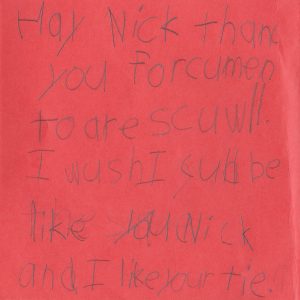 Hay Nick thanc
you forcumen
to are scuwll.
I wush I cull be
like you Nick
and I like your tie.